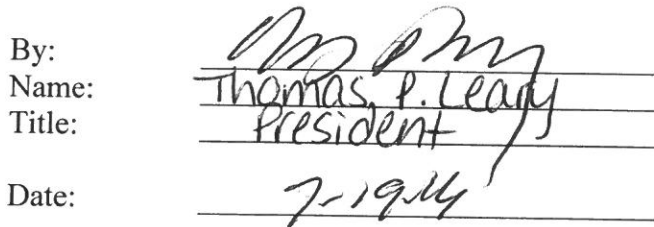 By:
Name: Thomas, P. Leary
Title: President
Date: 7-19-14